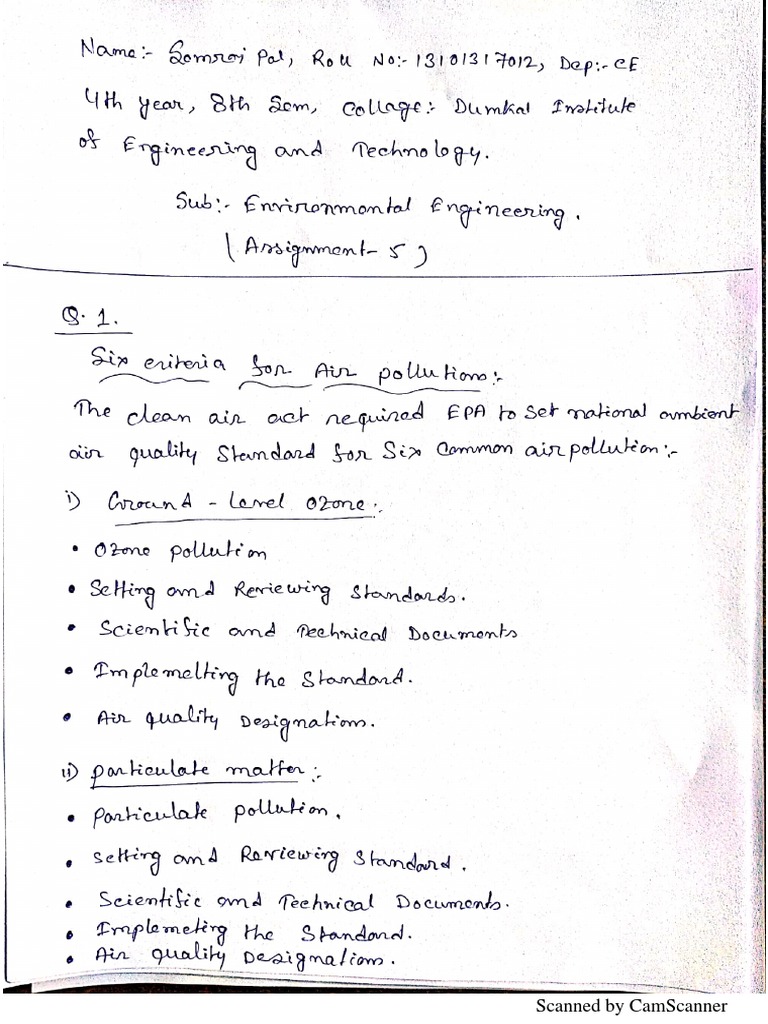 Name:- Somroj Pal, Roll No:- 13101317012, Dep:- CE
4th year, 8th Sem, Collage:- Dumkal Institute
of Engineering and Technology.
Sub:- Environmental Engineering.
(Assignment- 5)
Q. 1.
Six criteria for Air pollutions:-
The clean air act required EPA to set national ambient
air quality Standard for Six Common air pollution:-
i) Ground - Level Ozone:-
• Ozone pollution
• Setting and Reviewing Standards.
• Scientific and Technical Documents
• Implemelting the Standard.
• Air quality Designations.
ii) particulate matter:-
• Particulate pollution.
• Setting and Reviewing Standard.
• Scientific and Technical Documents.
• Implemeting the Standard.
• Air quality Designations.
Scanned by CamScanner